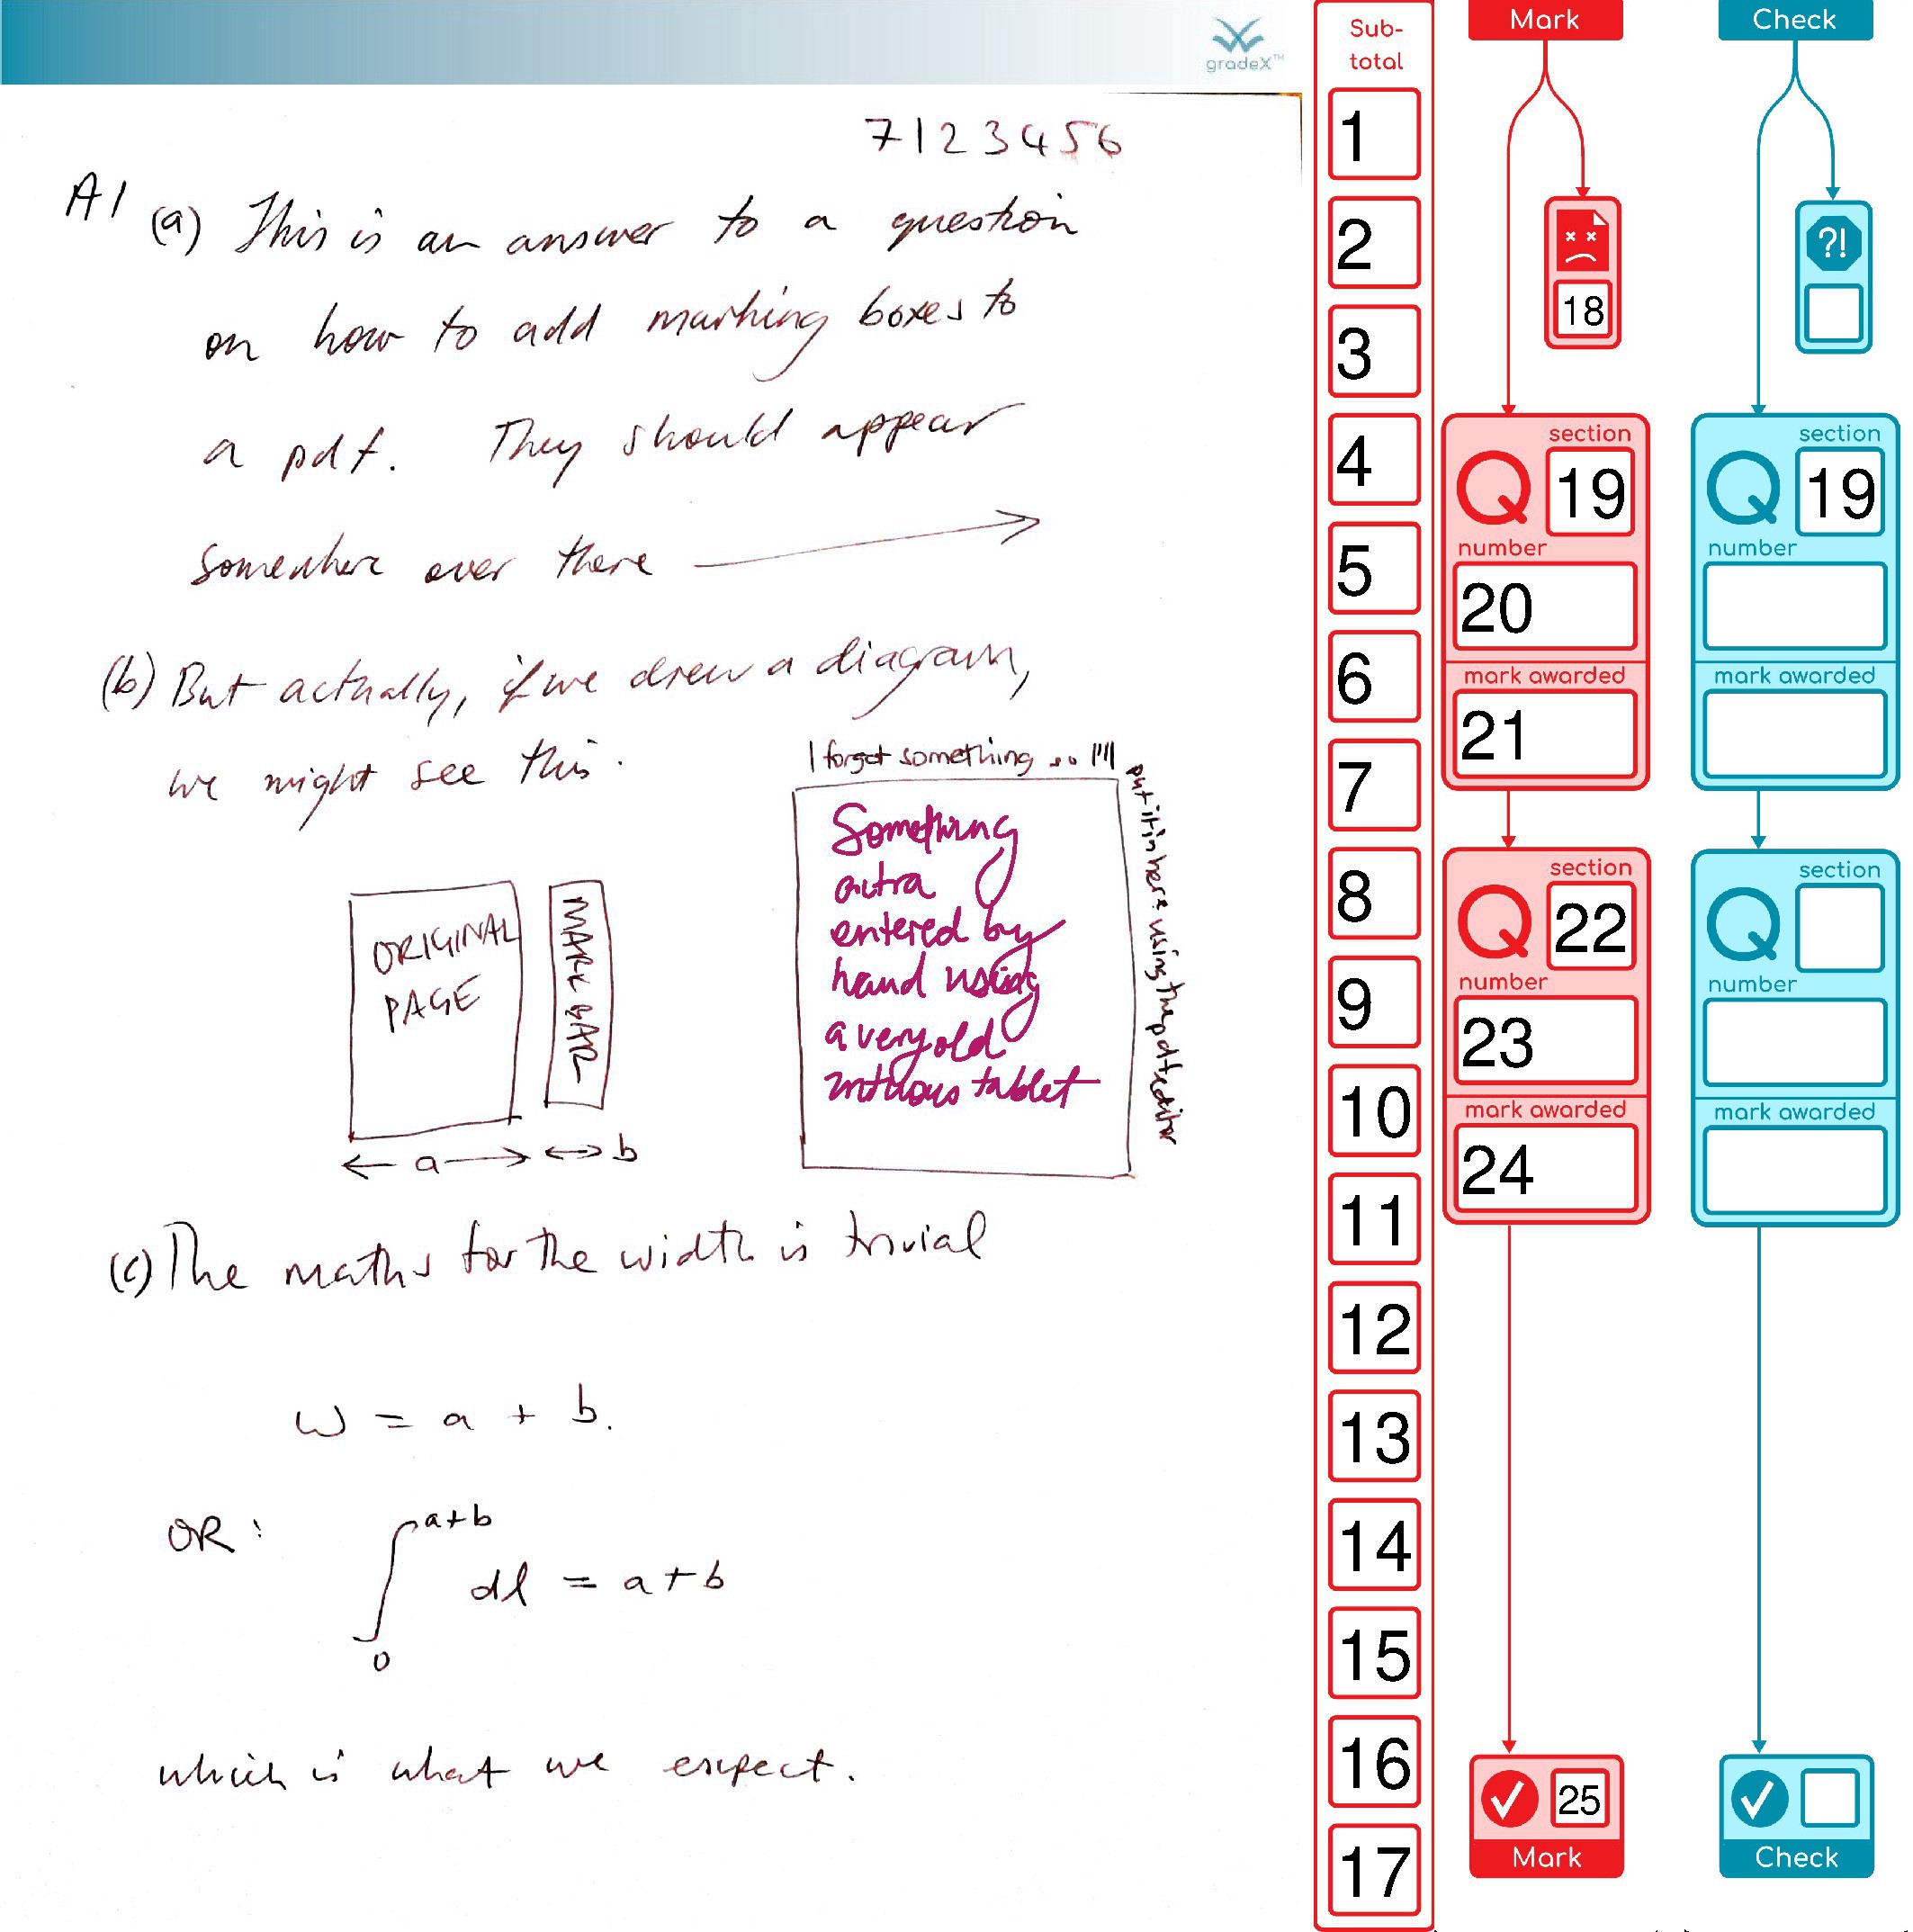 gradeX™
7123456
A1 (a) This is an answer to a question
on how to add marking boxes to
a pdf. They should appear
somewhere over there
(b) But actually, if we drew a diagram,
we might see this.
ORIGINAL
PAGE
MARK BAR
a
b
I forgot something so I'll
put it in here using the pdf editor
Something
extra
entered by
hand using
a very old
intuous tablet
(c) The maths for the width is trivial
w = a + b.
OR: ∫₀^(a+b) dl = a+b
which is what we expect.
Sub-
total
1
2
3
4
5
6
7
8
9
10
11
12
13
14
15
16
17
Mark
18
section
Q 19
number
20
mark awarded
21
section
Q 22
number
23
mark awarded
24
25
Mark
Check
?!
section
Q 19
number
mark awarded
section
Q
number
mark awarded
Check